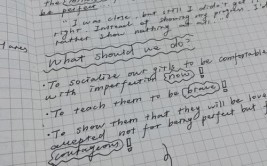 be perfect
" I was close, but still I didn't get it
right. Instead of showing my
rather show nothing at all."
What should we do?
• To socialise our girls to be comfortable
with imperfection now!
• To teach them to be brave!
• To show them that they will be loved
accepted not for being perfect but f
courageous!